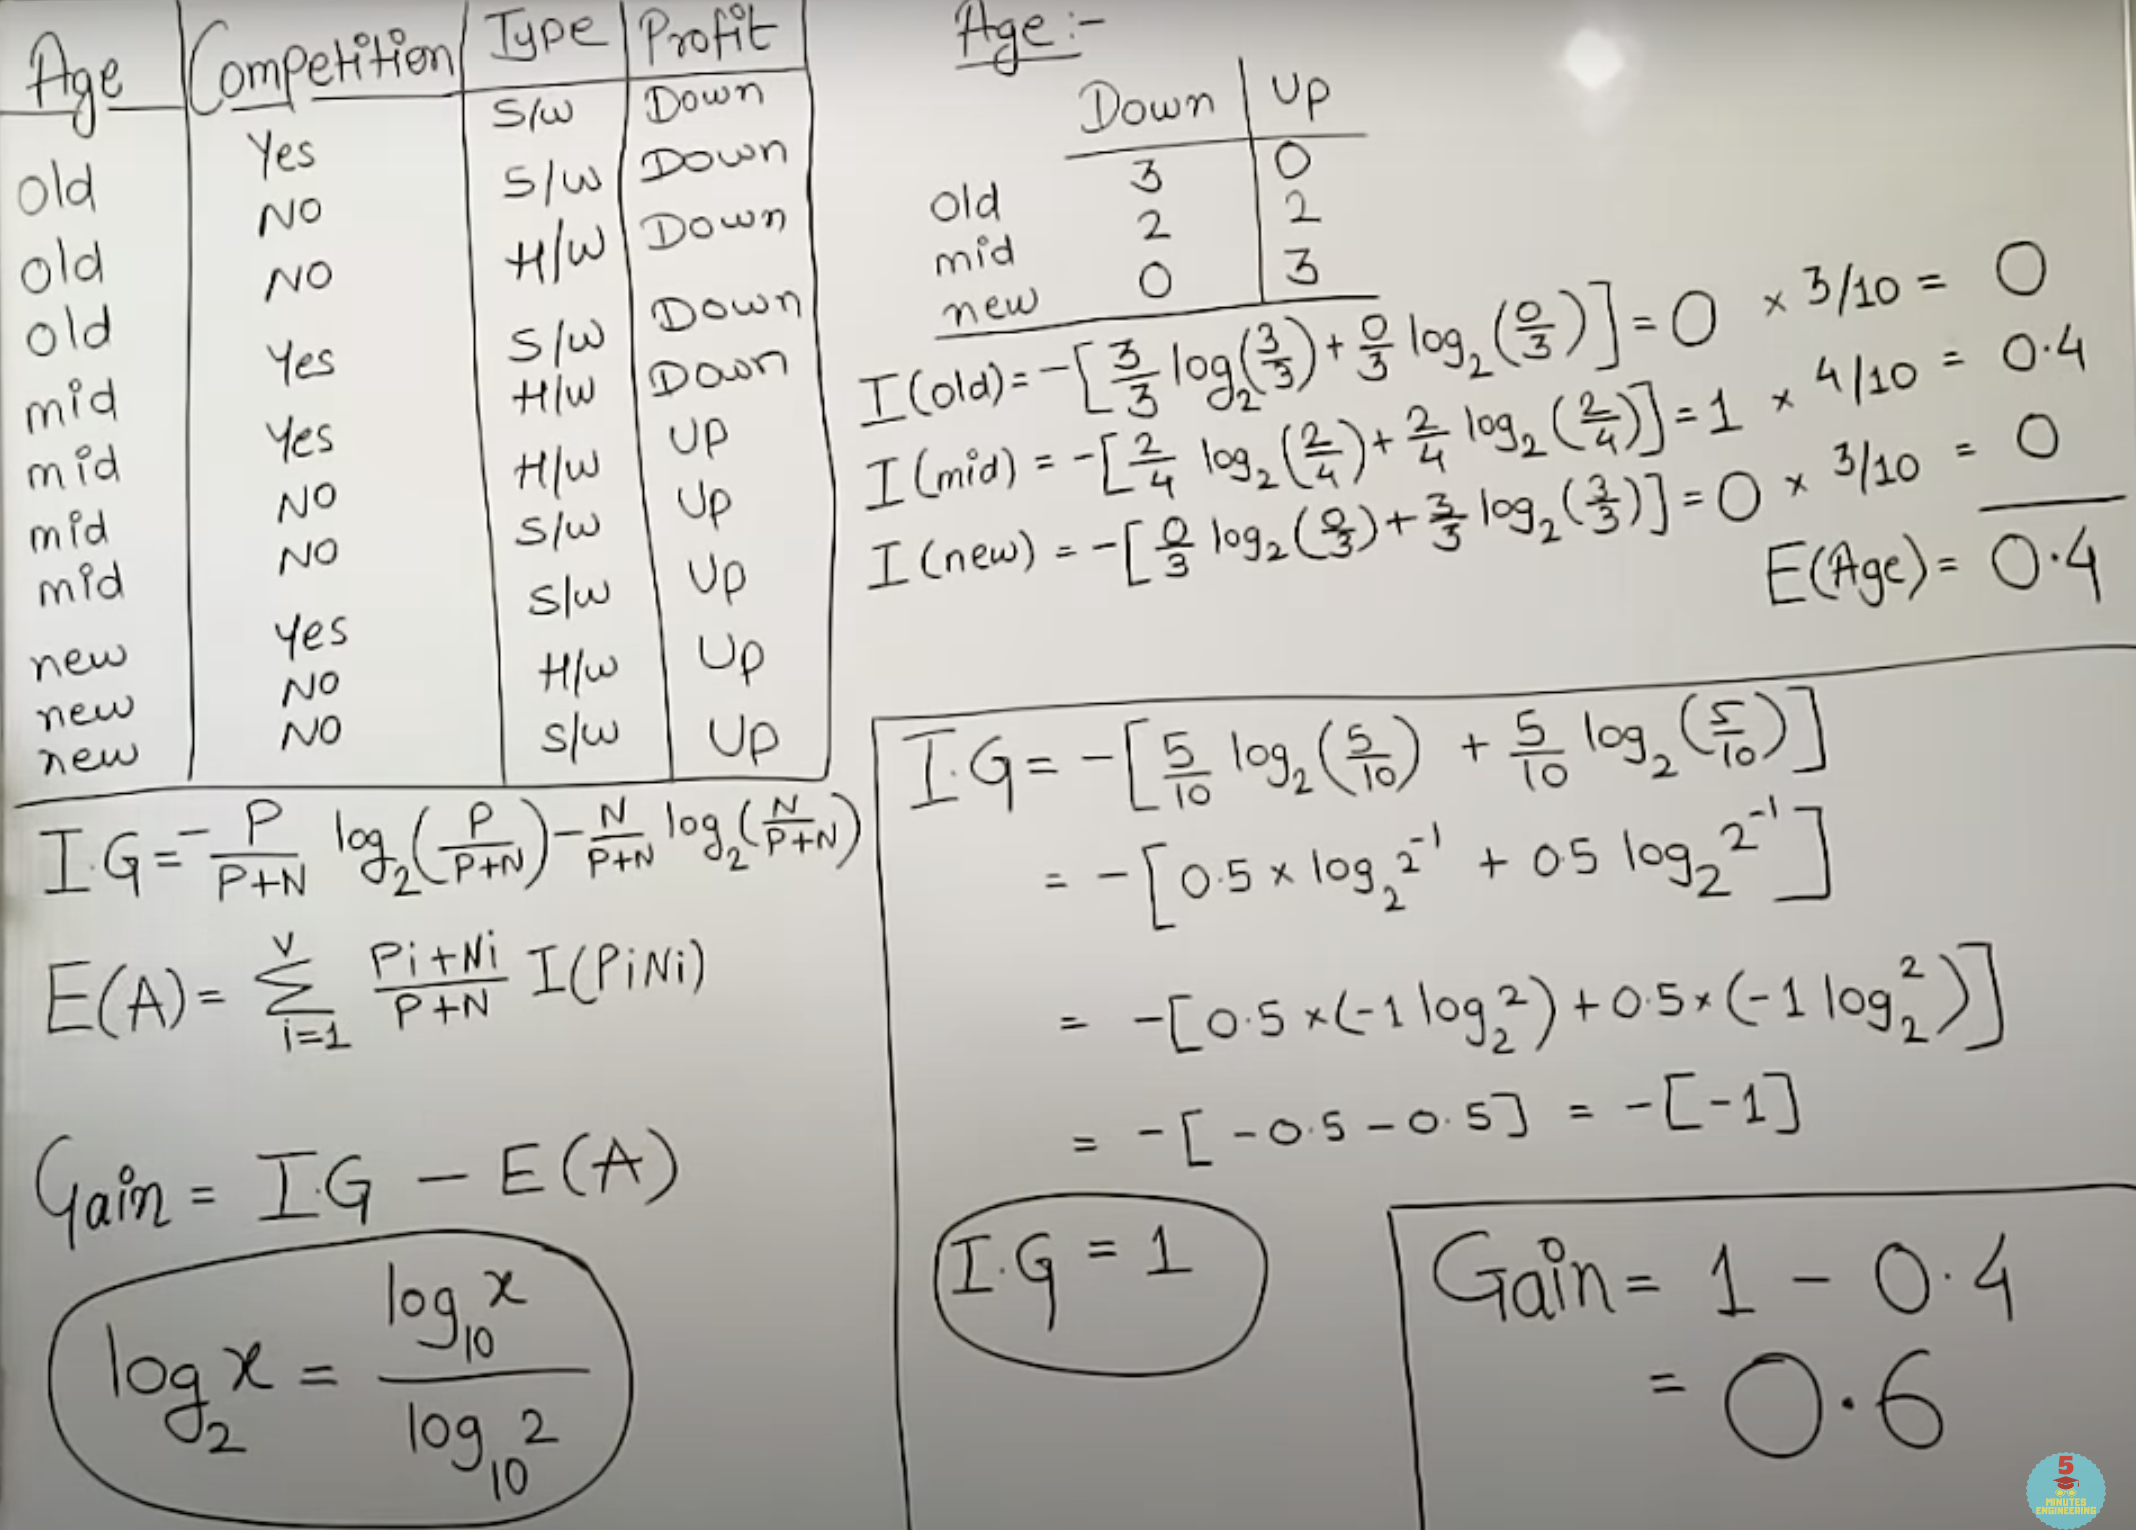 Age | Competition | Type | Profit
old | Yes | S/W | Down
old | NO | S/W | Down
old | NO | H/W | Down
mid | Yes | S/W | Down
mid | Yes | H/W | Down
mid | NO | H/W | UP
mid | NO | S/W | Up
new | Yes | S/W | Up
new | NO | H/W | Up
new | NO | S/W | Up
I.G = -P/(P+N) log₂(P/(P+N)) - N/(P+N) log₂(N/(P+N))
E(A) = Σ_{i=1}^{v} (Pi+Ni)/(P+N) I(PiNi)
Gain = I.G - E(A)
log₂x = log₁₀x / log₁₀2
Age :-
Down | Up
old 3 | 0
mid 2 | 2
new 0 | 3
I(old) = -[3/3 log₂(3/3) + 0/3 log₂(0/3)] = 0 × 3/10 = 0
I(mid) = -[2/4 log₂(2/4) + 2/4 log₂(2/4)] = 1 × 4/10 = 0.4
I(new) = -[0/3 log₂(0/3) + 3/3 log₂(3/3)] = 0 × 3/10 = 0
E(Age) = 0.4
I.G = -[5/10 log₂(5/10) + 5/10 log₂(5/10)]
= -[0.5 × log₂2⁻¹ + 0.5 log₂2⁻¹]
= -[0.5 × (-1 log₂2) + 0.5 × (-1 log₂2)]
= -[-0.5 - 0.5] = -[-1]
I.G = 1
Gain = 1 - 0.4
= 0.6
5
MINUTES
ENGINEERING